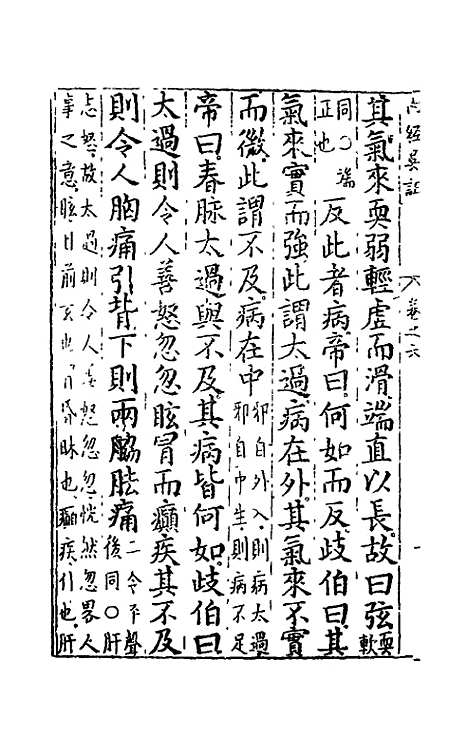 經吳註 卷之六
其氣來耎弱輕虛而滑端直以長故曰弦耎軟
同〇端正也反此者病帝曰何如而反歧伯曰其
氣來實而強此謂太過病在外其氣來不實
而微此謂不及病在中邪自外入則病太過邪自中生則病不足
帝曰春脉太過與不及其病皆何如歧伯曰
太過則令人善怒忽忽眩冒而癲疾其不及
則令人胸痛引背下則兩脇胠痛二令平聲後同〇肝
志怒故太過則令人善怒忽忽恍然忽畧人
事之意眩目前玄也冒昏昧也癲疾仆也肝